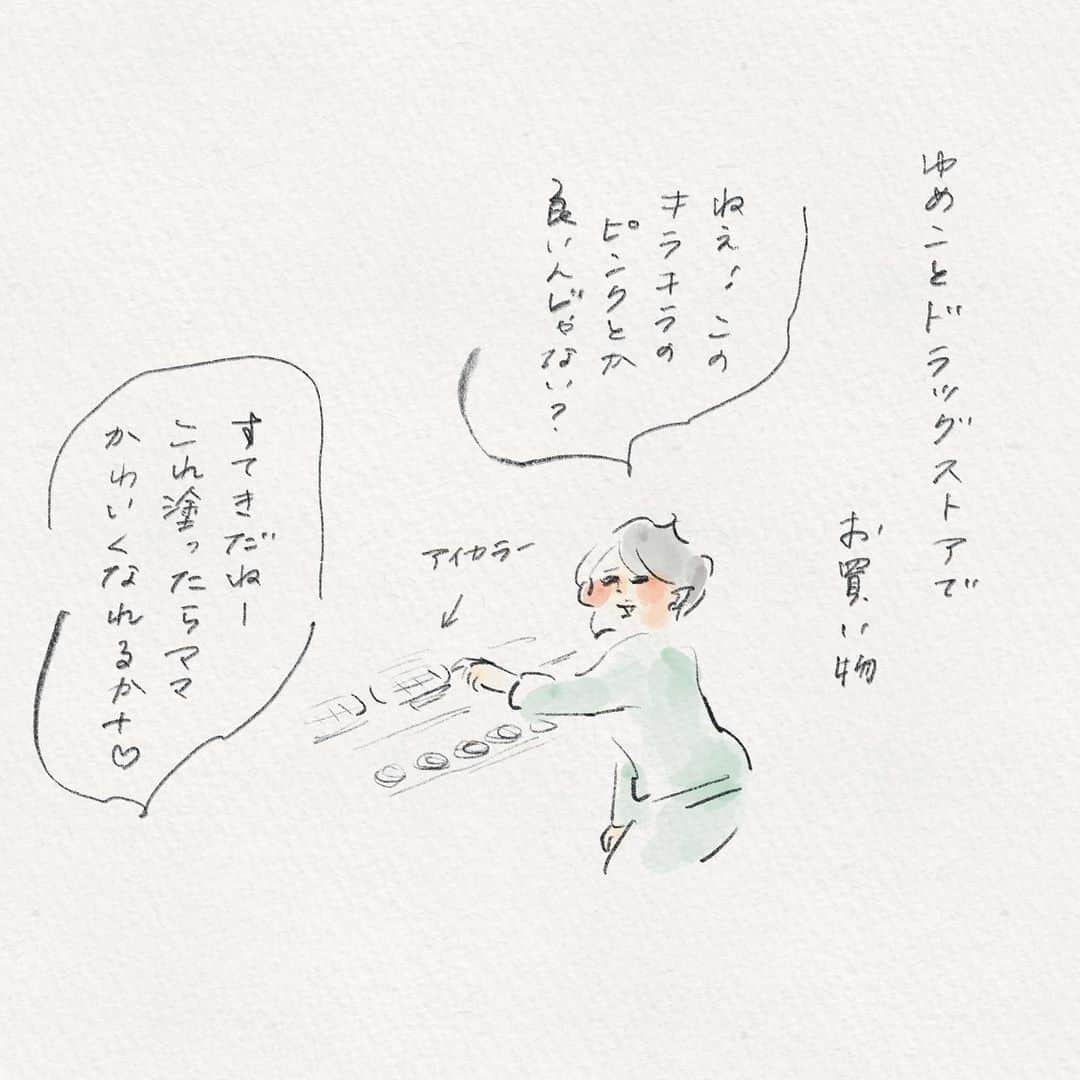 ゆめことドラッグストアで
お買い物
ねえ!この
キラキラの
ピンクとか
良いんじゃない?
アイカラー
すてきだねー
これ塗ったらママ
かわいくなれるかナ♡